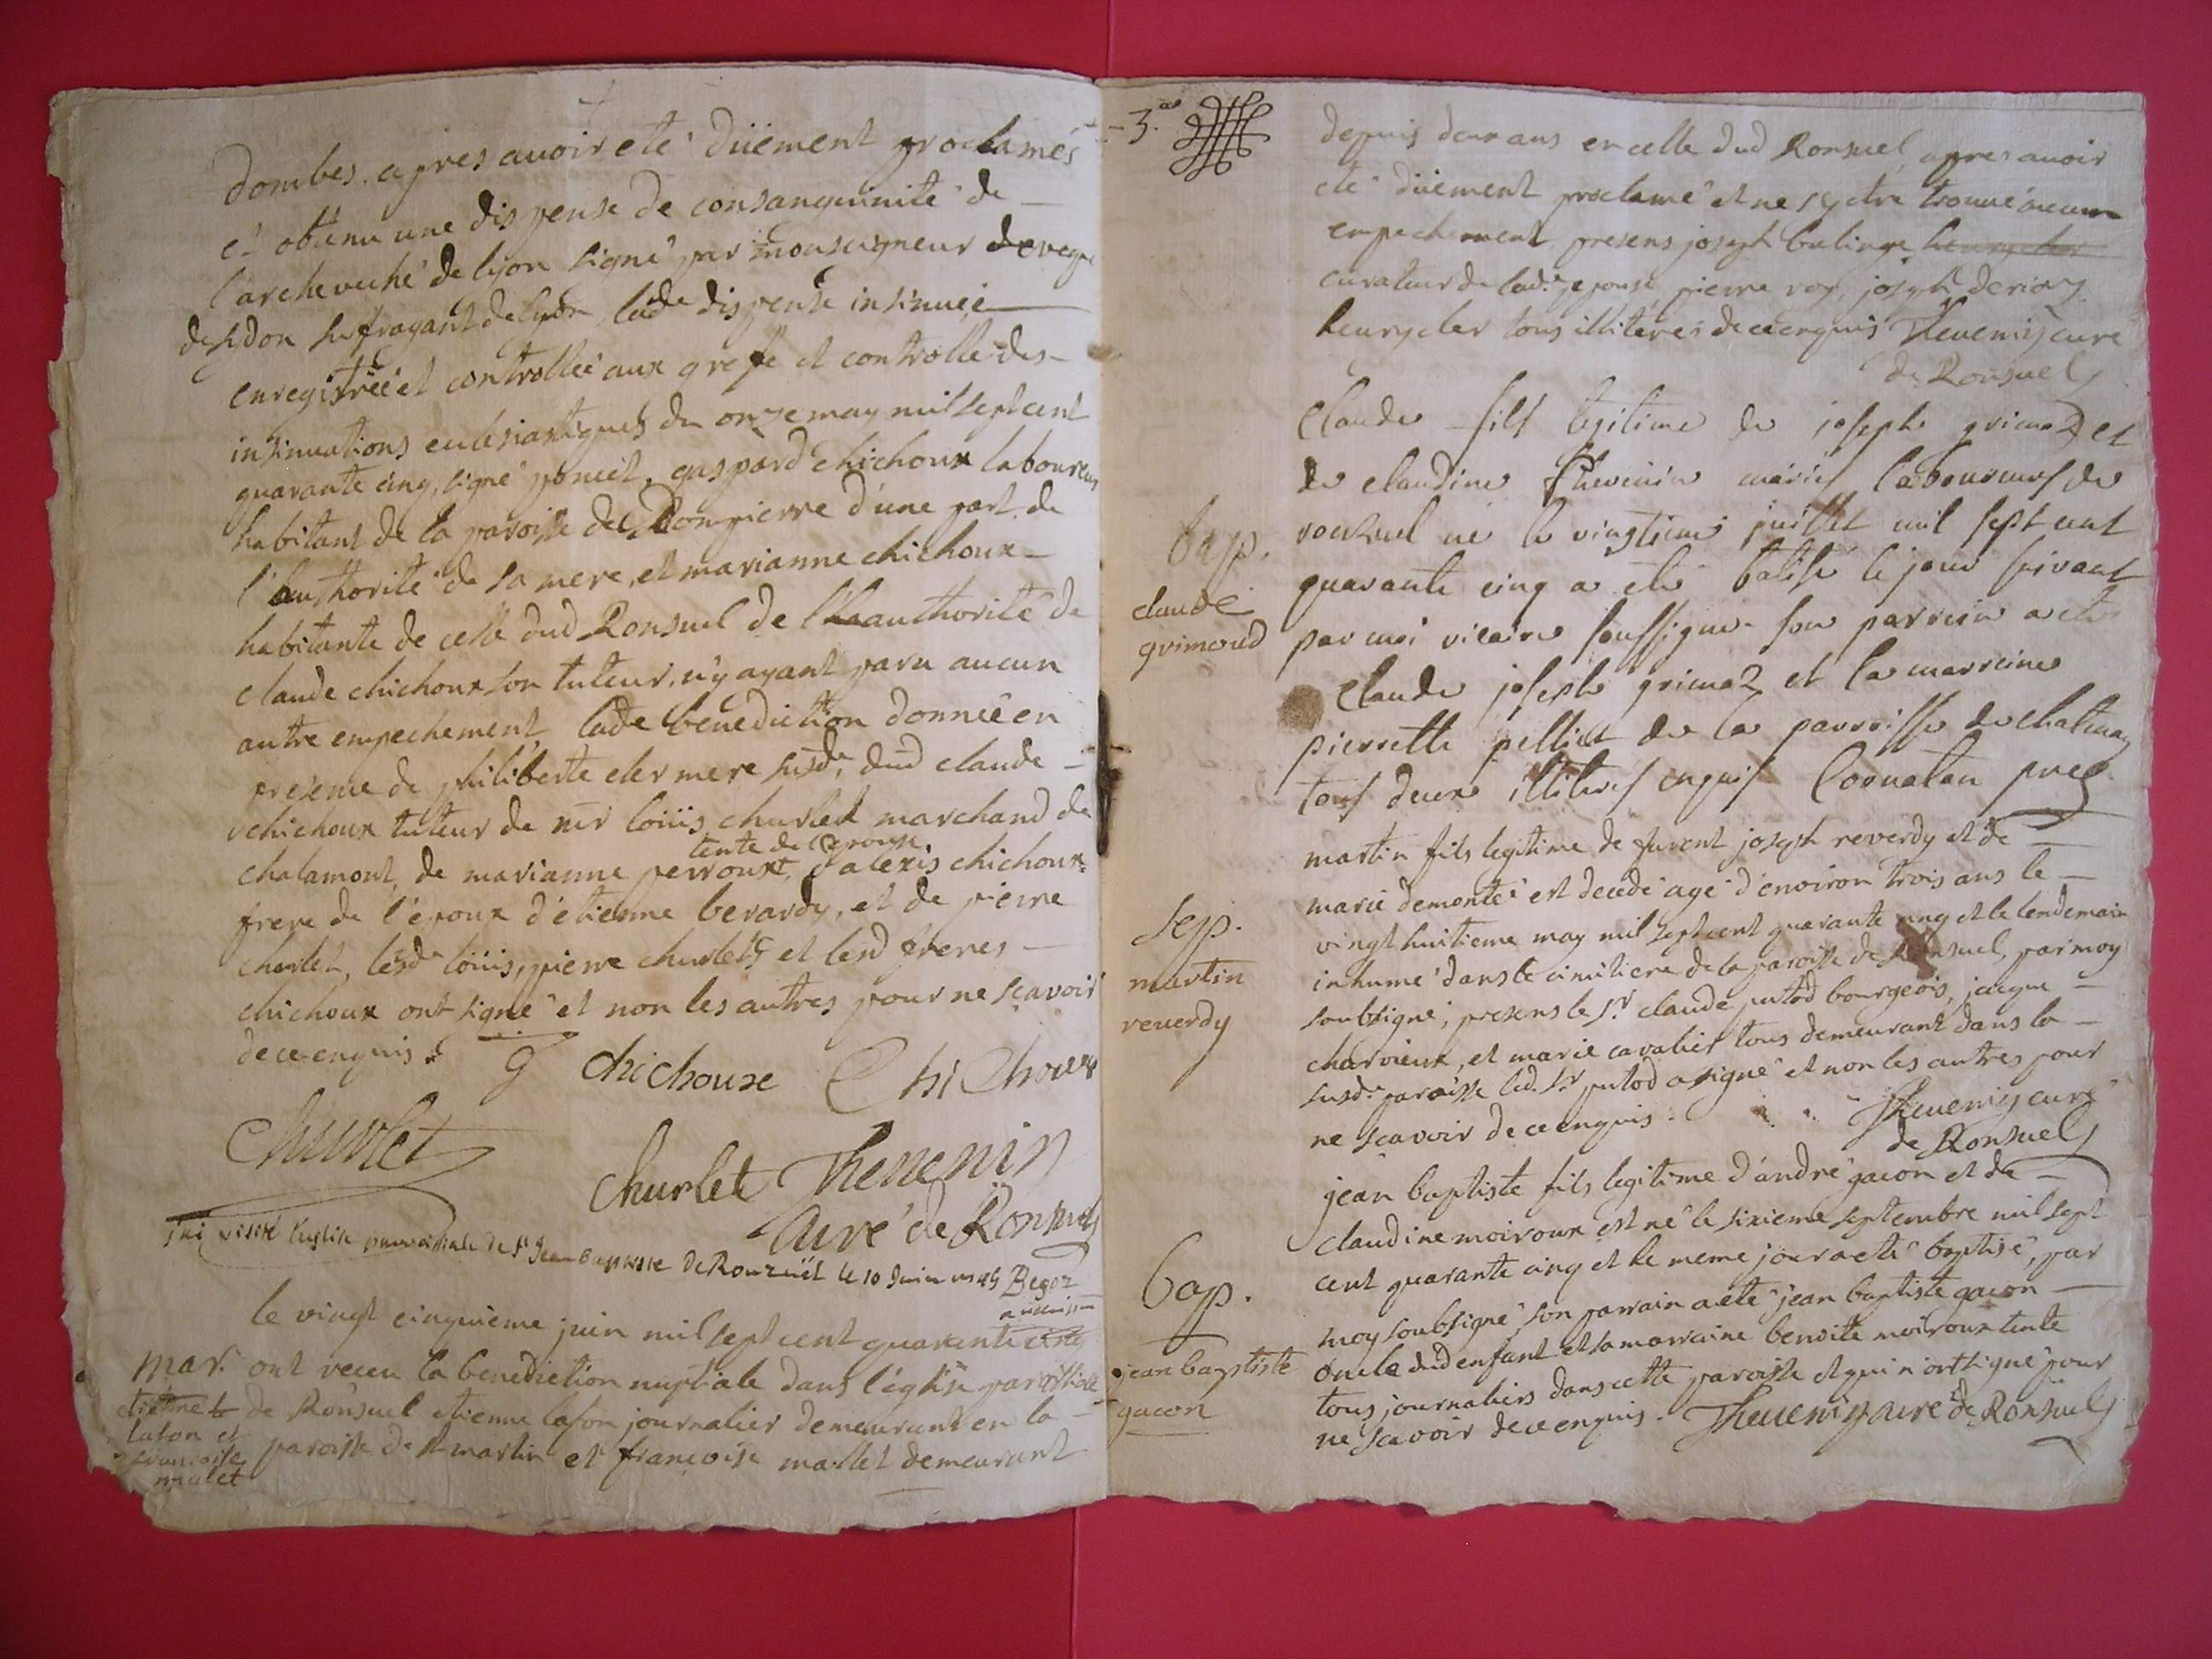 dombes. apres avoir eté düement proclamés
et obtenu une dispense de consanguinité de
l'archeveché de lyon signé par monseigneur
de sydon suffragant de lyon, lade dispense insinuéé
enregistréé et controlléé aux greffe et controlle des
insinuations eclésiastiques du onze may mil sept cent
quarante cinq, signé poncet, gaspard chichoux laboureur
habitant de la paroisse de Dompierre d'une part de
l'authorité de sa mere, et marianne chichoux
habitante de celle dud Ronsuel de l'authorité de
claude chichoux son tuteur, n'y ayant paru aucun
autre empechement, lade benediction donnéé en
presence de philiberte cler mere susde, dud claude
chichoux tuteur de mr loüis churlet marchand de
chalamont, de marianne perroux, tente de l'epoux, d'alexis chichoux
frere de l'époux d'étienne berardy, et de pierre
churlet, lesds loüis, pierre churlets et lesd freres
chichoux ont signé et non les autres pour ne sçavoir
de ce enquis.
chichoux Chi Choux
Churlet
Churlet Thevenin
curé de Ronsuel
J'ai visité l'eglise parroissiale de St Jean Baptiste de Ronzuël le 10 Juin 1745 Begoz
le vingt cinquieme juin mil sept cent quarente cinq
mar. ont receu la benediction nuptiale dans l'église paroissialle
etienne de Ronsuel etienne lafon journalier demeurant en la
lafon et paroisse de st martin et françoise mallet demeurant
françoise
malet
3.
depuis deux ans en celle dud Ronsuel, apres avoir
eté düement proclamé et ne s'y etre trouvé aucun
empechement presens joseph bulinge
curateur de lade epouse, pierre roy, joseph deriaz
henry cler tous illiterés de ce enquis Thevenin curé
de Ronsuel
Claude fils legitime de joseph grimoz et
de claudine thevenin mariés laboureurs de
ronsuel né le vingtieme juillet mil sept cent
bap.
quarante cinq a eté batisé le jour suivant
claude
par moi vicaire soussigné son parrein a eté
grimoud
Claude joseph grimoz et la marreine
pierrette pelliet de la parroisse de chatenay
tous deux illiterés enquis Cornaton pre
martin fils legitime de furent joseph reverdy et de
marie demonté est decedé agé d'environ trois ans le
sep.
vingt huitieme may mil sept cent quarante cinq et le lendemain
martin
inhumé dans le cimitiere de la paroisse de Ronsuel, par moy
reverdy
soubsigné, presens le sr claude putod bourgeois, jacque
charvieux, et marie cavalier tous demeurant dans la
susde paroisse led. sr putod a signé et non les autres pour
ne sçavoir de ce enquis. Thevenin curé
de Ronsuel
jean baptiste fils legitime d'andré gacon et de
claudine moiroux est né le sixieme septembre mil sept
bap.
cent quarante cinq et le meme jour a eté baptisé, par
moy soubsigné, son parrain a eté jean baptiste gacon
jean baptiste
oncle dud enfant et sa marraine benoite moiroux tente
gacon
tous journaliers dans cette paroisse et qui n'ont signé pour
ne sçavoir de ce enquis. Thevenin curé de Ronsuel